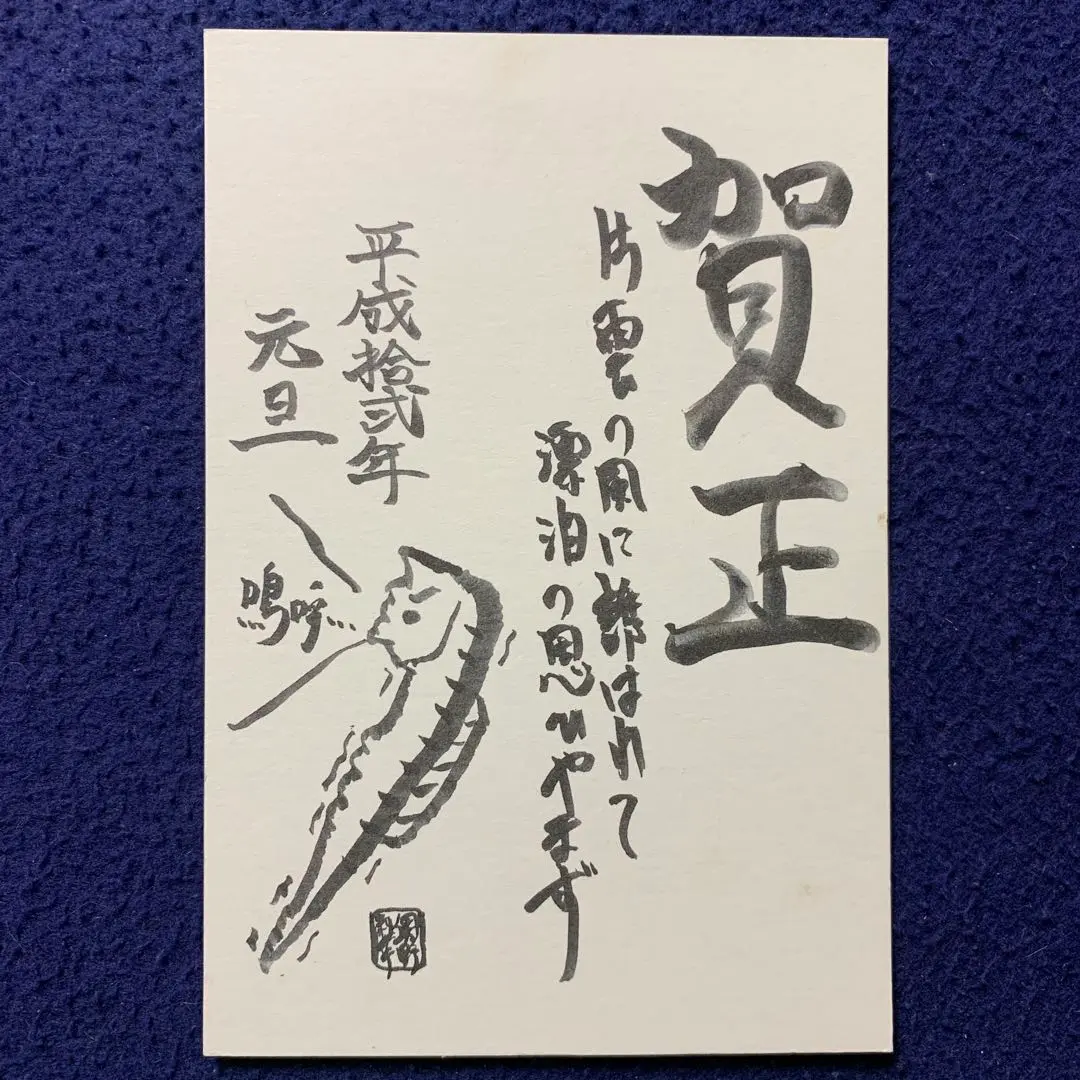 賀正
片雲の風に誘はれて
漂泊の思ひやまず
平成拾弐年
元旦
嗚呼…